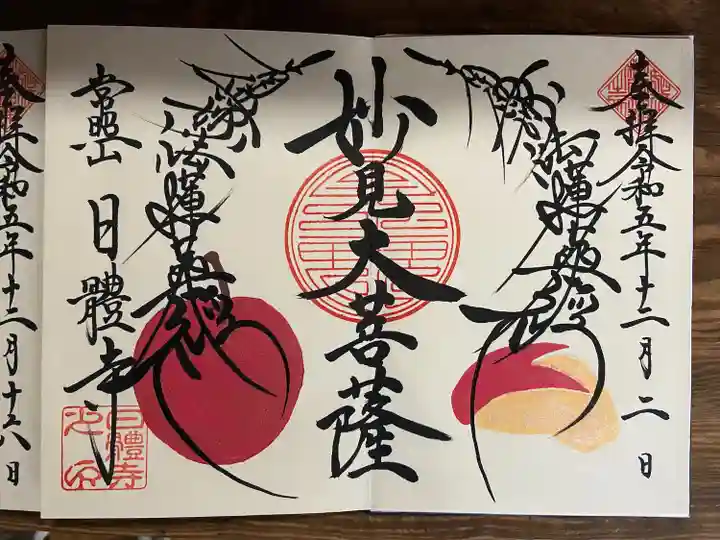 奉拝 令和五年十二月二日
南無妙法蓮華経
妙見大菩薩
南無妙法蓮華経
常照山 日體寺
日體寺
之印
奉拝 令和五年十二月十六日